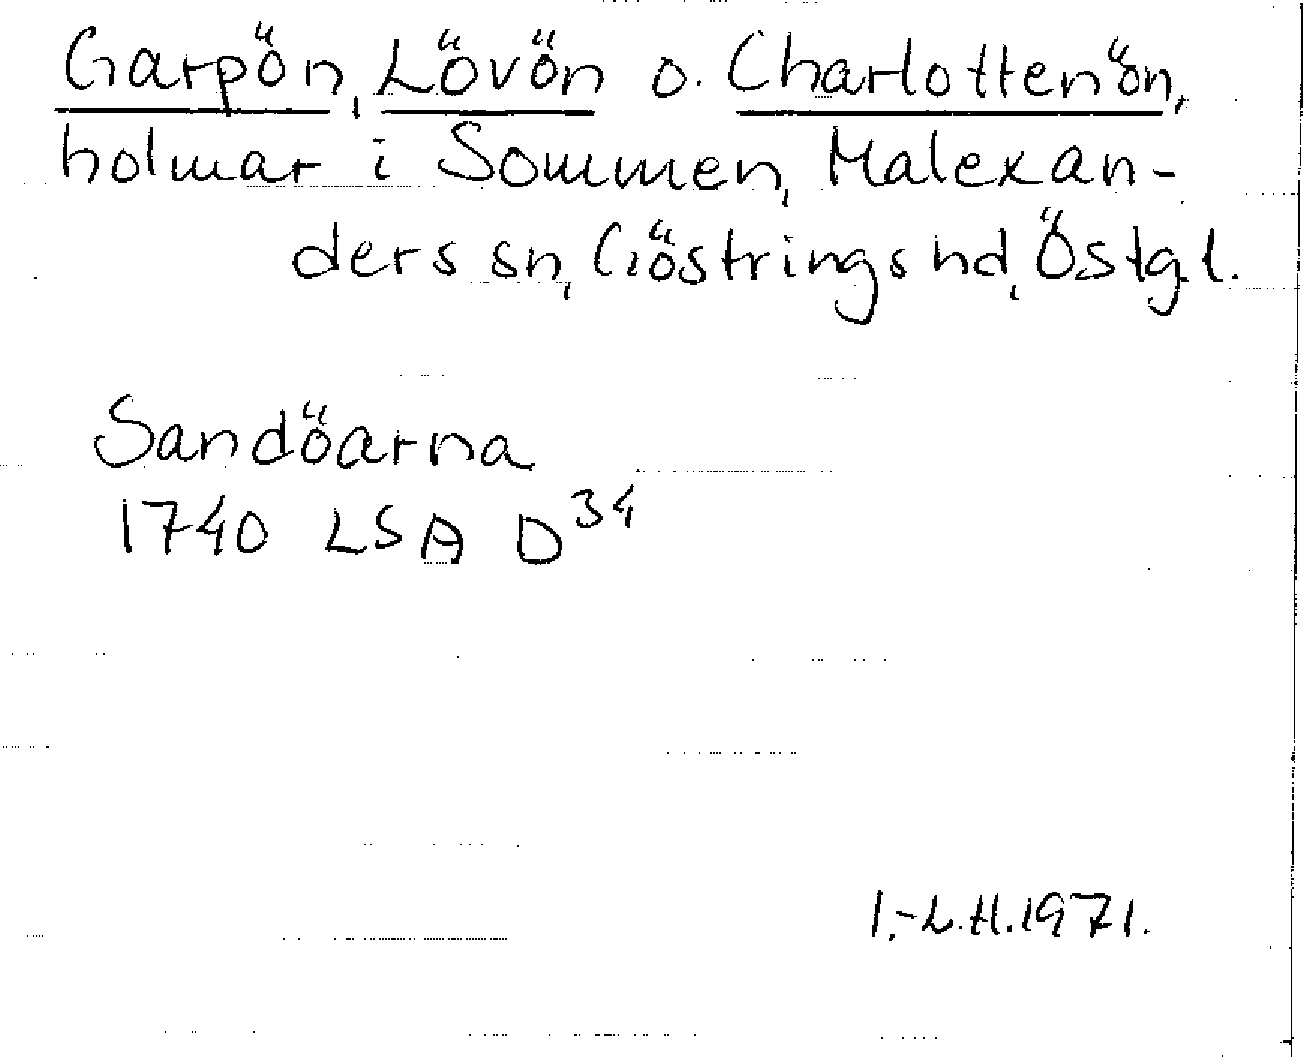 Garpön, Lövön o. Charlottenön,
holmar i Sommen, Malexan-
ders sn, Göstrings hd, Östgl.
Sandöarna
1740 LSA D³⁴
I.-L.H. 1971.